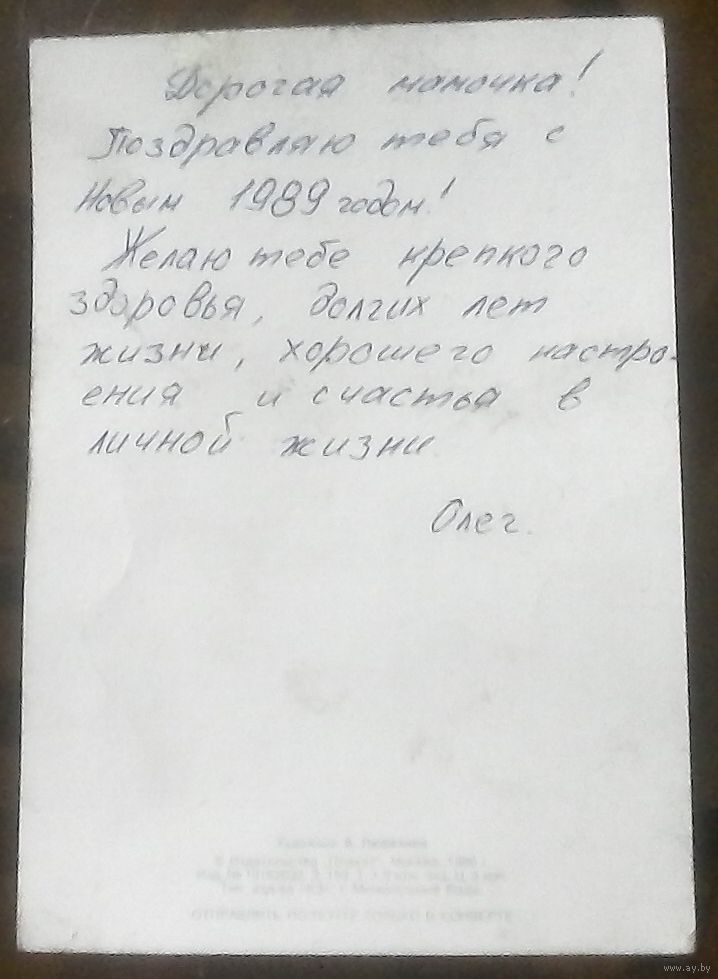 Дорогая мамочка!
Поздравляю тебя с
Новым 1989 годом!
Желаю тебе крепкого
здоровья, долгих лет
жизни, хорошего настро-
ения и счастья в
личной жизни.
Олег.
Художник В.
© Издательство Москва,
ОТПРАВЛЯТЬ ПО ПОЧТЕ ТОЛЬКО В КОНВЕРТЕ
www.ay.by